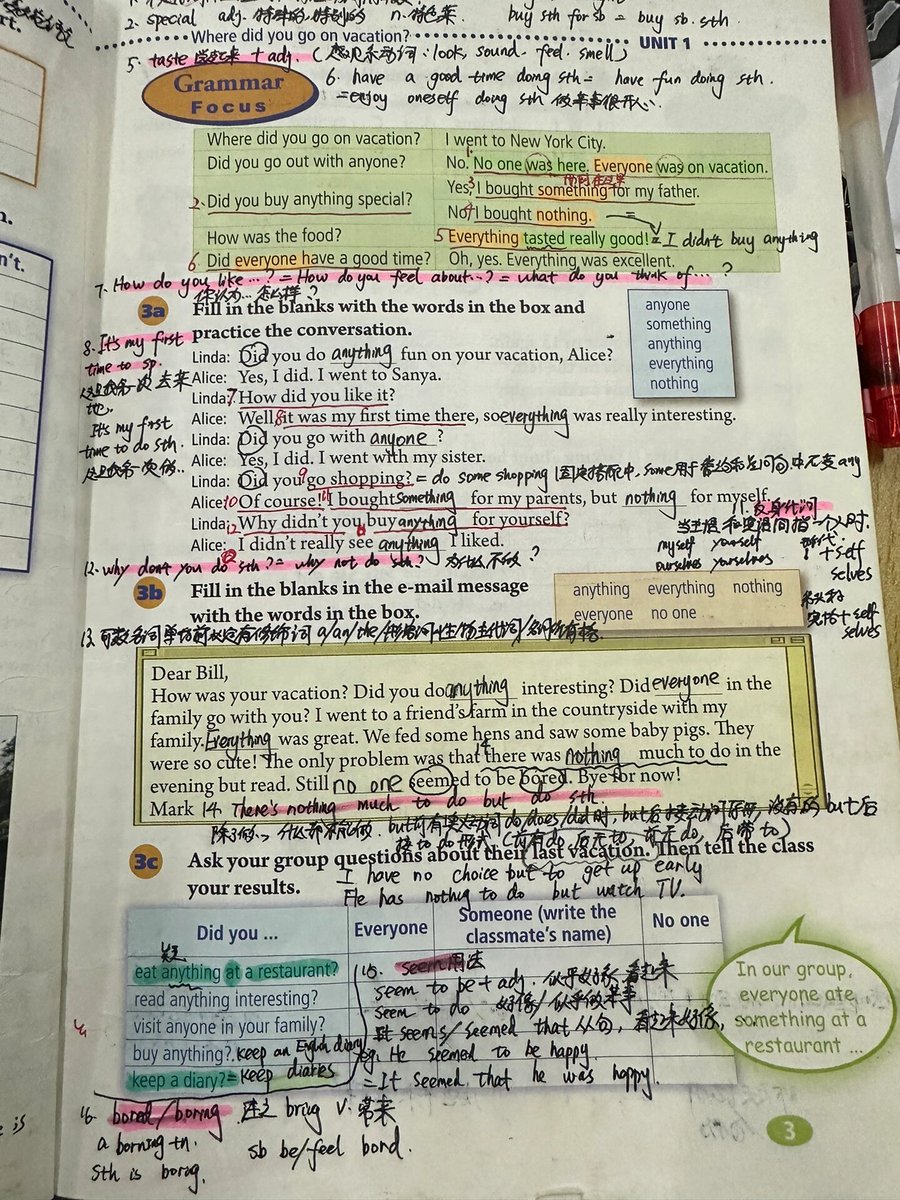 2. special adj. 特殊的, 特别的 n. 特色菜 buy sth for sb = buy sb. sth.
Where did you go on vacation? UNIT 1
5. taste 尝起来 + adj. (感观系动词: look, sound. feel. smell)
6. have a good time doing sth = have fun doing sth.
= enjoy oneself doing sth 做某事很开心.
Grammar
Focus
Where did you go on vacation? I went to New York City.
Did you go out with anyone? 1. No. No one was here. Everyone was on vacation.
2. Did you buy anything special? Yes, 3 I bought something for my father.
No, 4 I bought nothing. = I didn't buy anything
How was the food? 5 Everything tasted really good!
6. Did everyone have a good time? Oh, yes. Everything was excellent.
7. How do you like...? = How do you feel about...? = what do you think of...?
你认为...怎么样?
3a Fill in the blanks with the words in the box and
practice the conversation.
anyone
something
anything
everything
nothing
8. It's my first
time to sp.
这是我第一次去某
地.
It's my first
time to do sth.
这是我第一次做..
Linda: Did you do anything fun on your vacation, Alice?
Alice: Yes, I did. I went to Sanya.
Linda: 7 How did you like it?
Alice: Well, 8 it was my first time there, so everything was really interesting.
Linda: Did you go with anyone ?
Alice: Yes, I did. I went with my sister.
Linda: Did you 9 go shopping? = do some shopping 固定搭配中, some用于常

Alice: 10 Of course! 11 I bought something for my parents, but nothing for myself.
Linda: 12 Why didn't you buy anything for yourself?
Alice: I didn't really see anything I liked.
11. 反身代词
当主语和宾语同指一个人时.
myself yourself
ourselves yourselves
+ self
selves
宾格 + self
selves
12. why don't you do sth? = why not do sth? 为什么不做?
3b Fill in the blanks in the e-mail message
with the words in the box.
anything everything nothing
everyone no one
13. 可数名词单数前必须有修饰词 a/an/the/形容词性物主代词/名词所有格.
Dear Bill,
How was your vacation? Did you do anything interesting? Did everyone in the
family go with you? I went to a friend's farm in the countryside with my
family. Everything was great. We fed some hens and saw some baby pigs. They
were so cute! The only problem was that 14 there was nothing much to do in the
evening but read. Still no one seemed to be bored. Bye for now!
Mark
14. There's nothing much to do but do sth.
除了做.. 什么都不能做. but前有实义动词do/does/did时, but后接动词原形, 没有的but后
接to do形式 (前有do, 后无to, 前无do, 后带to)
3c Ask your group questions about their last vacation. Then tell the class
your results.
I have no choice but to get up early
He has nothig to do but watch TV.
Did you ... Everyone Someone (write the classmate's name) No one
eat anything at a restaurant?
read anything interesting?
visit anyone in your family?
buy anything? keep an English diary
keep a diary? = keep diaries
15. seem 用法
seem to be + adj. 似乎好像, 看起来
seem to do 好像/似乎做某事
It seems/seemed that 从句, 看起来好像..
eg. He seemed to be happy.
= It seemed that he was happy.
In our group,
everyone ate
something at a
restaurant ...
16. bored/boring 区 bring v. 带来
a borning tn. sb be/feel bord.
Sth is borig.
3